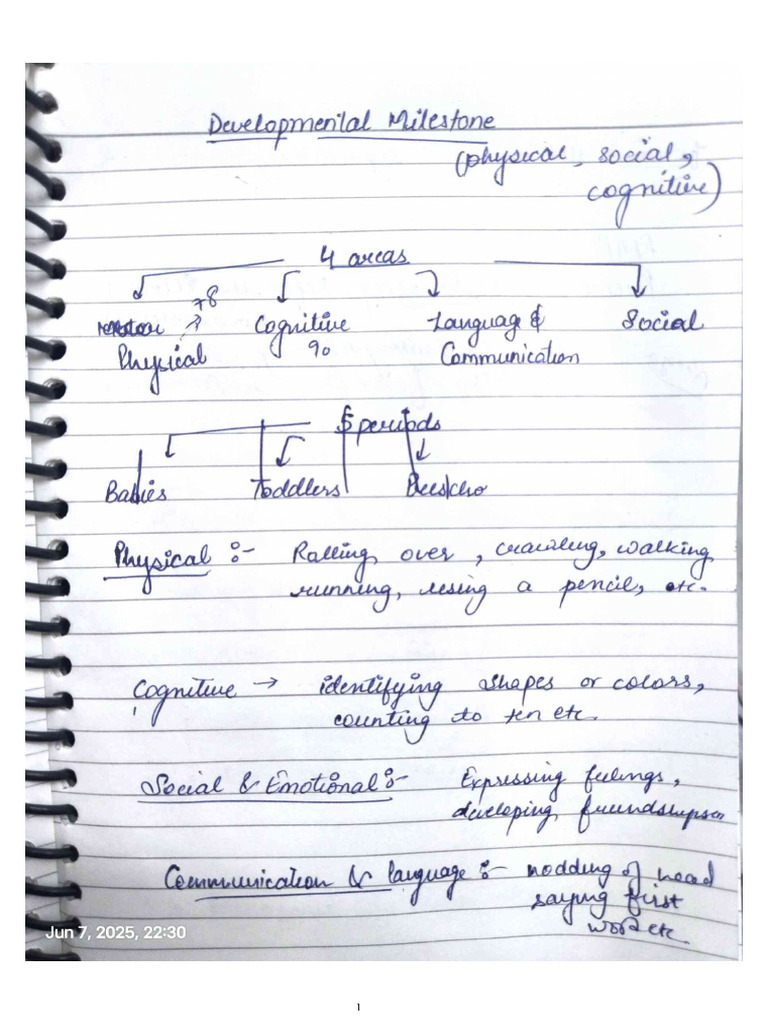 Developmental Milestone
(physical, social,
cognitive)
4 areas
Physical
78
Cognitive
90
Language &
Communication
Social
5 periods
Babies Toddlers
Physical :- Ralling over, crawling, walking
running, using a pencil, etc.
Cognitive → identifying shapes or colors,
counting to ten etc.
Social & Emotional :- Expressing feelings,
developing
Communication & language :- nodding of head
saying first
word etc.
Jun 7, 2025, 22:30
1